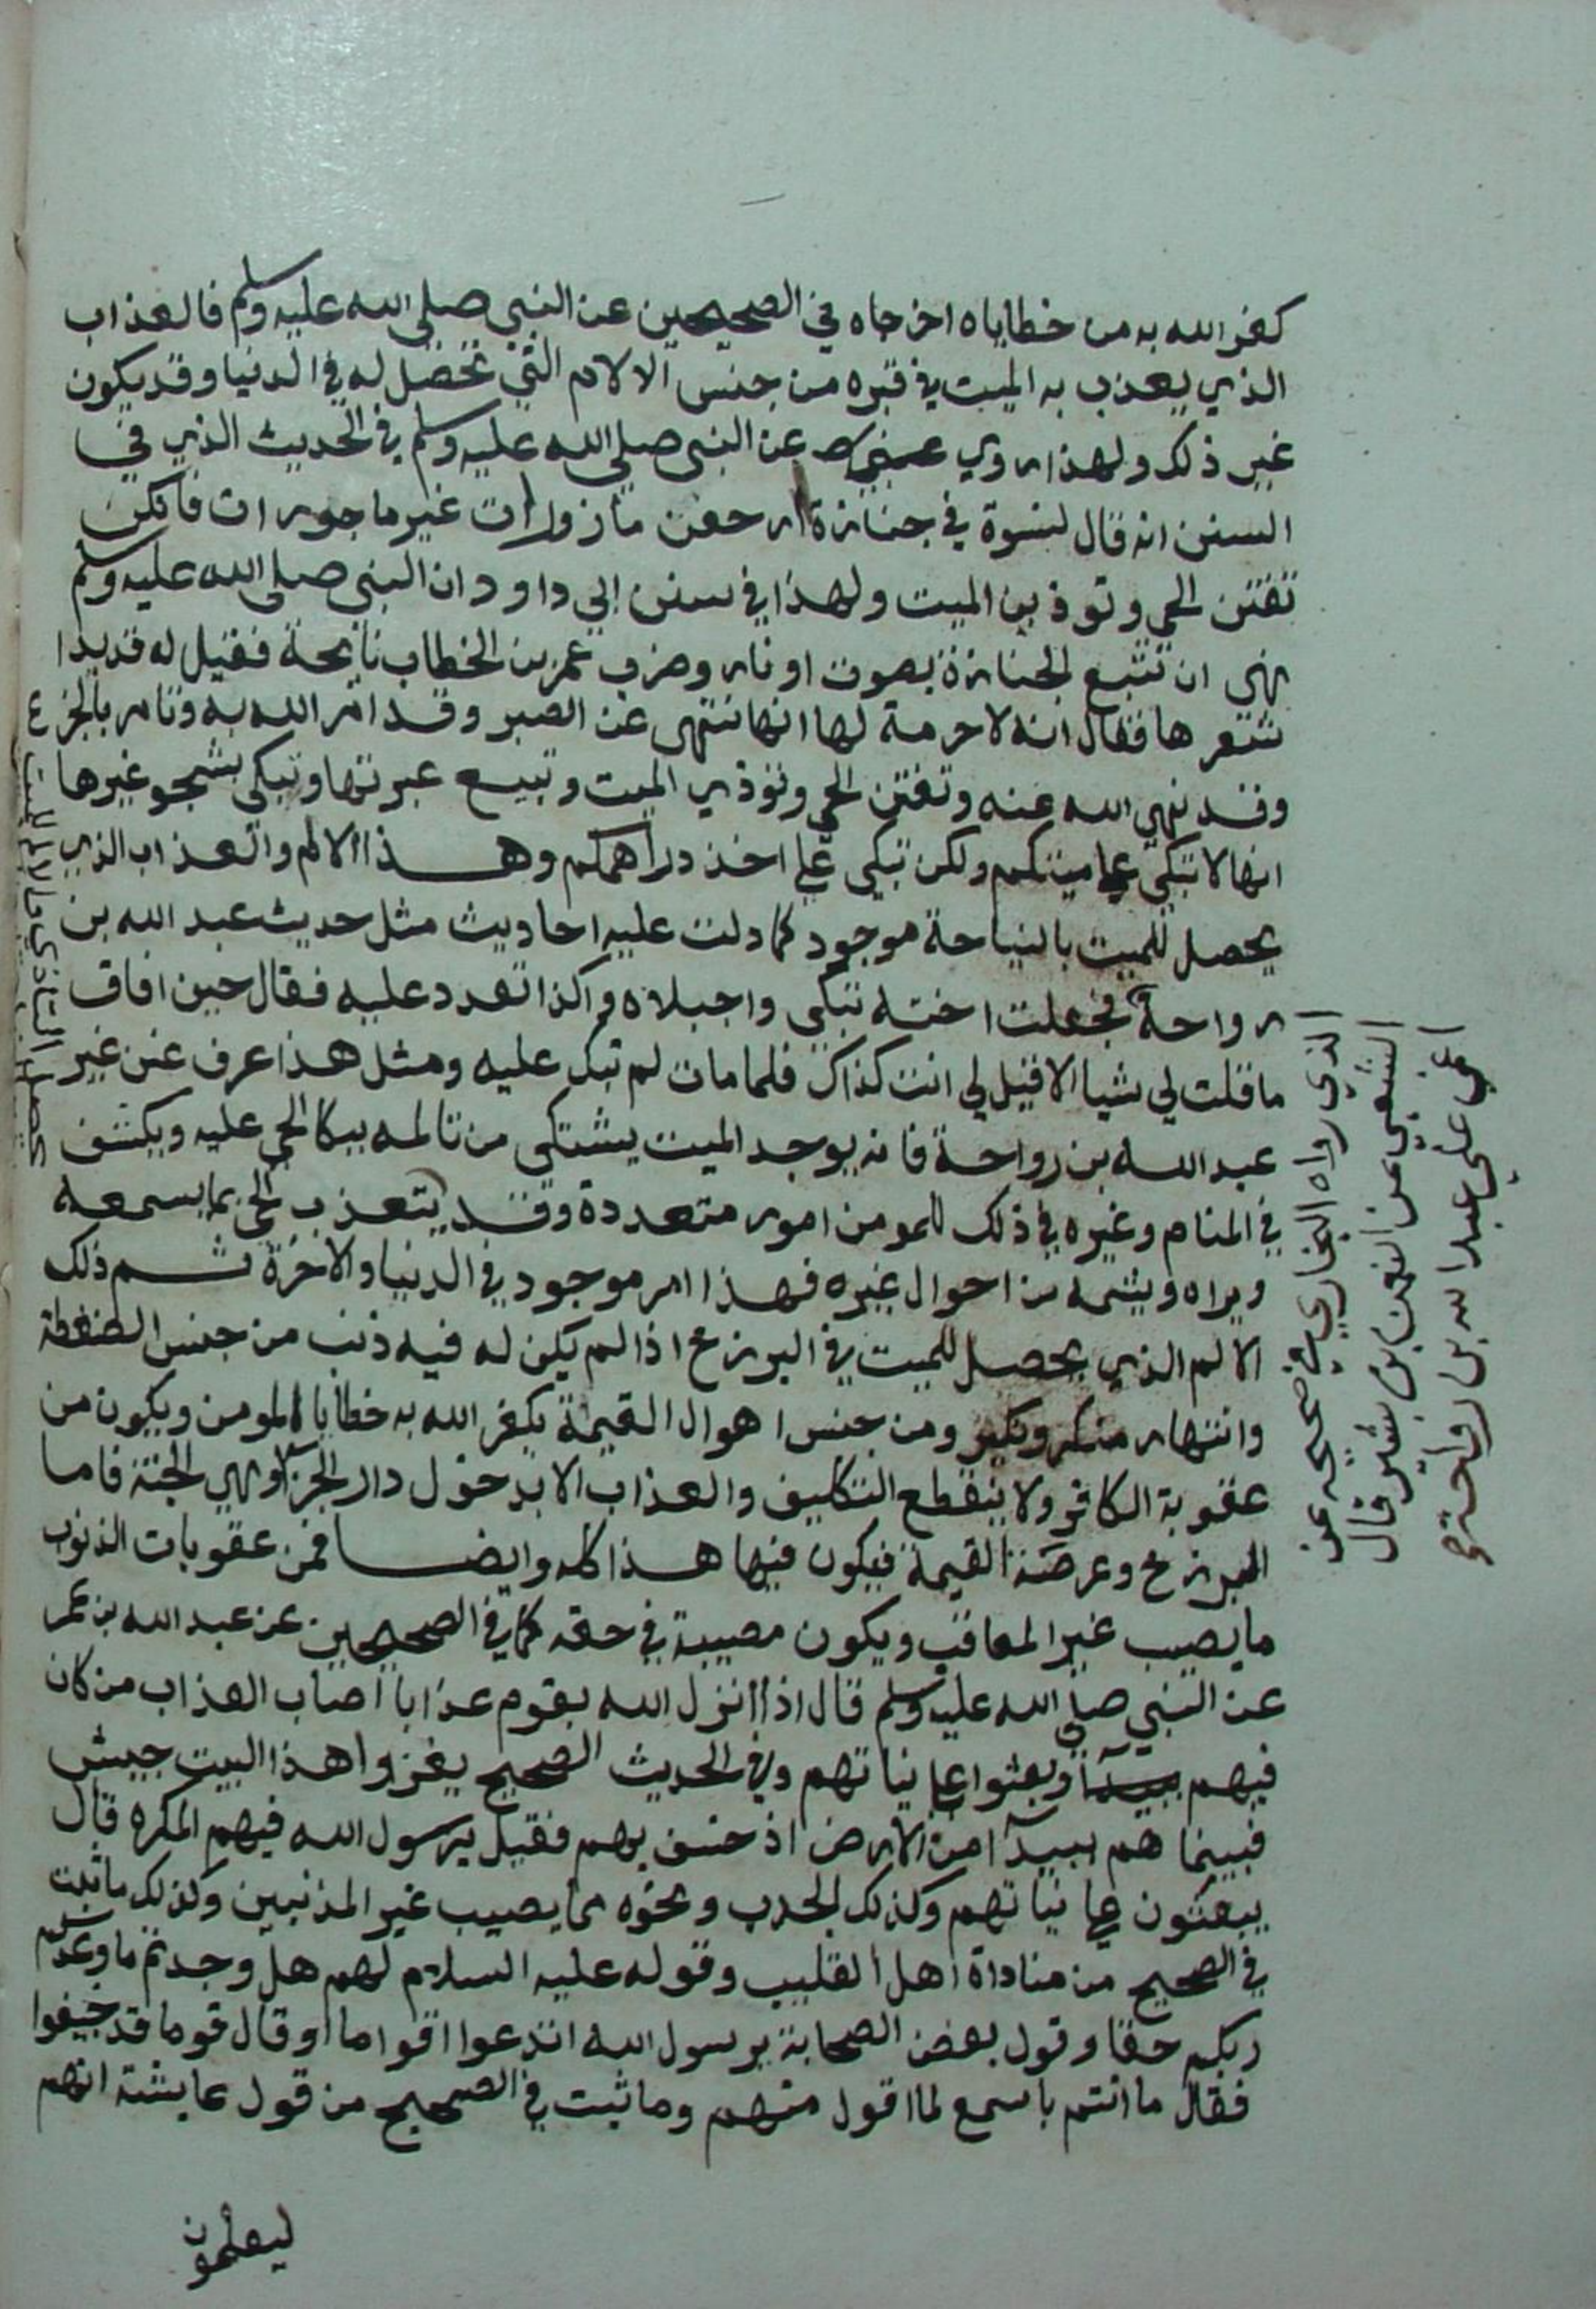 كفر الله به من خطاياه اخرجاه في الصحيحين عن النبي صلى الله عليه وسلم فالعذاب
الذي يعذب به الميت في قبره من جنس الالام التي تحصل له في الدنيا وقد يكون
غير ذلك ولهذا روي عن النبي صلى الله عليه وسلم في الحديث الذي في
السنن انه قال لنسوة في جنازة ارجعن مازورات غير ماجورات فانكن
تفتن الحي وتوذين الميت ولهذا في سنن ابي داود ان النبي صلى الله عليه وسلم
نهى ان تتبع الجنازة بصوت او نار وضرب عمر بن الخطاب نايحة فقيل له قد بدا
شعرها فقال انه لا حرمة لها انها تنهى عن الصبر وقد امر الله به وتامر بالجزع
وقد نهى الله عنه وتفتن الحي وتوذي الميت وتبيع عبرتها وتبكي بشجو غيرها
انها لا تبكي على ميتكم ولكن تبكي على اخذ دراهمكم وهذا الالم والعذاب الذي
يحصل للميت بالنياحة موجود كما دلت عليه احاديث مثل حديث عبد الله بن
رواحة فجعلت اخته تبكي واجبلاه واكذا تعدد عليه فقال حين افاق
ما قلت لي شيا الا قيل لي انت كذاك فلما مات لم تبك عليه ومثل هذا عرف عن غير
عبد الله بن رواحة فانه يوجد الميت يشتكي من تالمه ببكا الحي عليه ويكشف
في المنام وغيره في ذلك للمومن امور متعددة وقد يتعذب الحي بما يسمعه
ويراه ويشمه من احوال غيره فهذا امر موجود في الدنيا والاخرة ثم ذلك
الالم الذي يحصل للميت في البرزخ اذا لم يكن له فيه ذنب من جنس الضغطة
وانتهار منكر ونكير ومن جنس اهوال القيمة يكفر الله به خطايا المومن ويكون من
عقوبة الكافر ولا ينقطع التكليف والعذاب الا بدخول دار الجزآ وهي الجنة فاما
البرزخ وعرصة القيمة فيكون فيها هذا كله وايضا فمن عقوبات الذنوب
ما يصيب غير المعاقب ويكون مصيبة في حقه كما في الصحيحين عن عبد الله بن عمر
عن النبي صلى الله عليه وسلم قال اذا انزل الله بقوم عذابا اصاب العذاب من كان
فيهم وبعثوا على نياتهم وفي الحديث الصحيح يغزوا هذا البيت جيش
فبينما هم ببيدآ من الارض اذ خسف بهم فقيل يرسول الله فيهم المكره قال
يبعثون على نياتهم وكذلك الجدب ونحوه مما يصيب غير المذنبين وكذلك ما ثبت
في الصحيح من مناداة اهل القليب وقوله عليه السلام لهم هل وجدتم ما وعدكم
ربكم حقا وقول بعض الصحابة يرسول الله اتدعوا اقواما او قال قوما قد جيفوا
فقال ما انتم باسمع لما اقول منهم وما ثبت في الصحيح من قول عايشة انهم
ليعلمون
الذي رواه البخاري في صحيحه عن
الشعبي عن النعمن بن بشير قال
اغمي على عبد الله بن رواحة